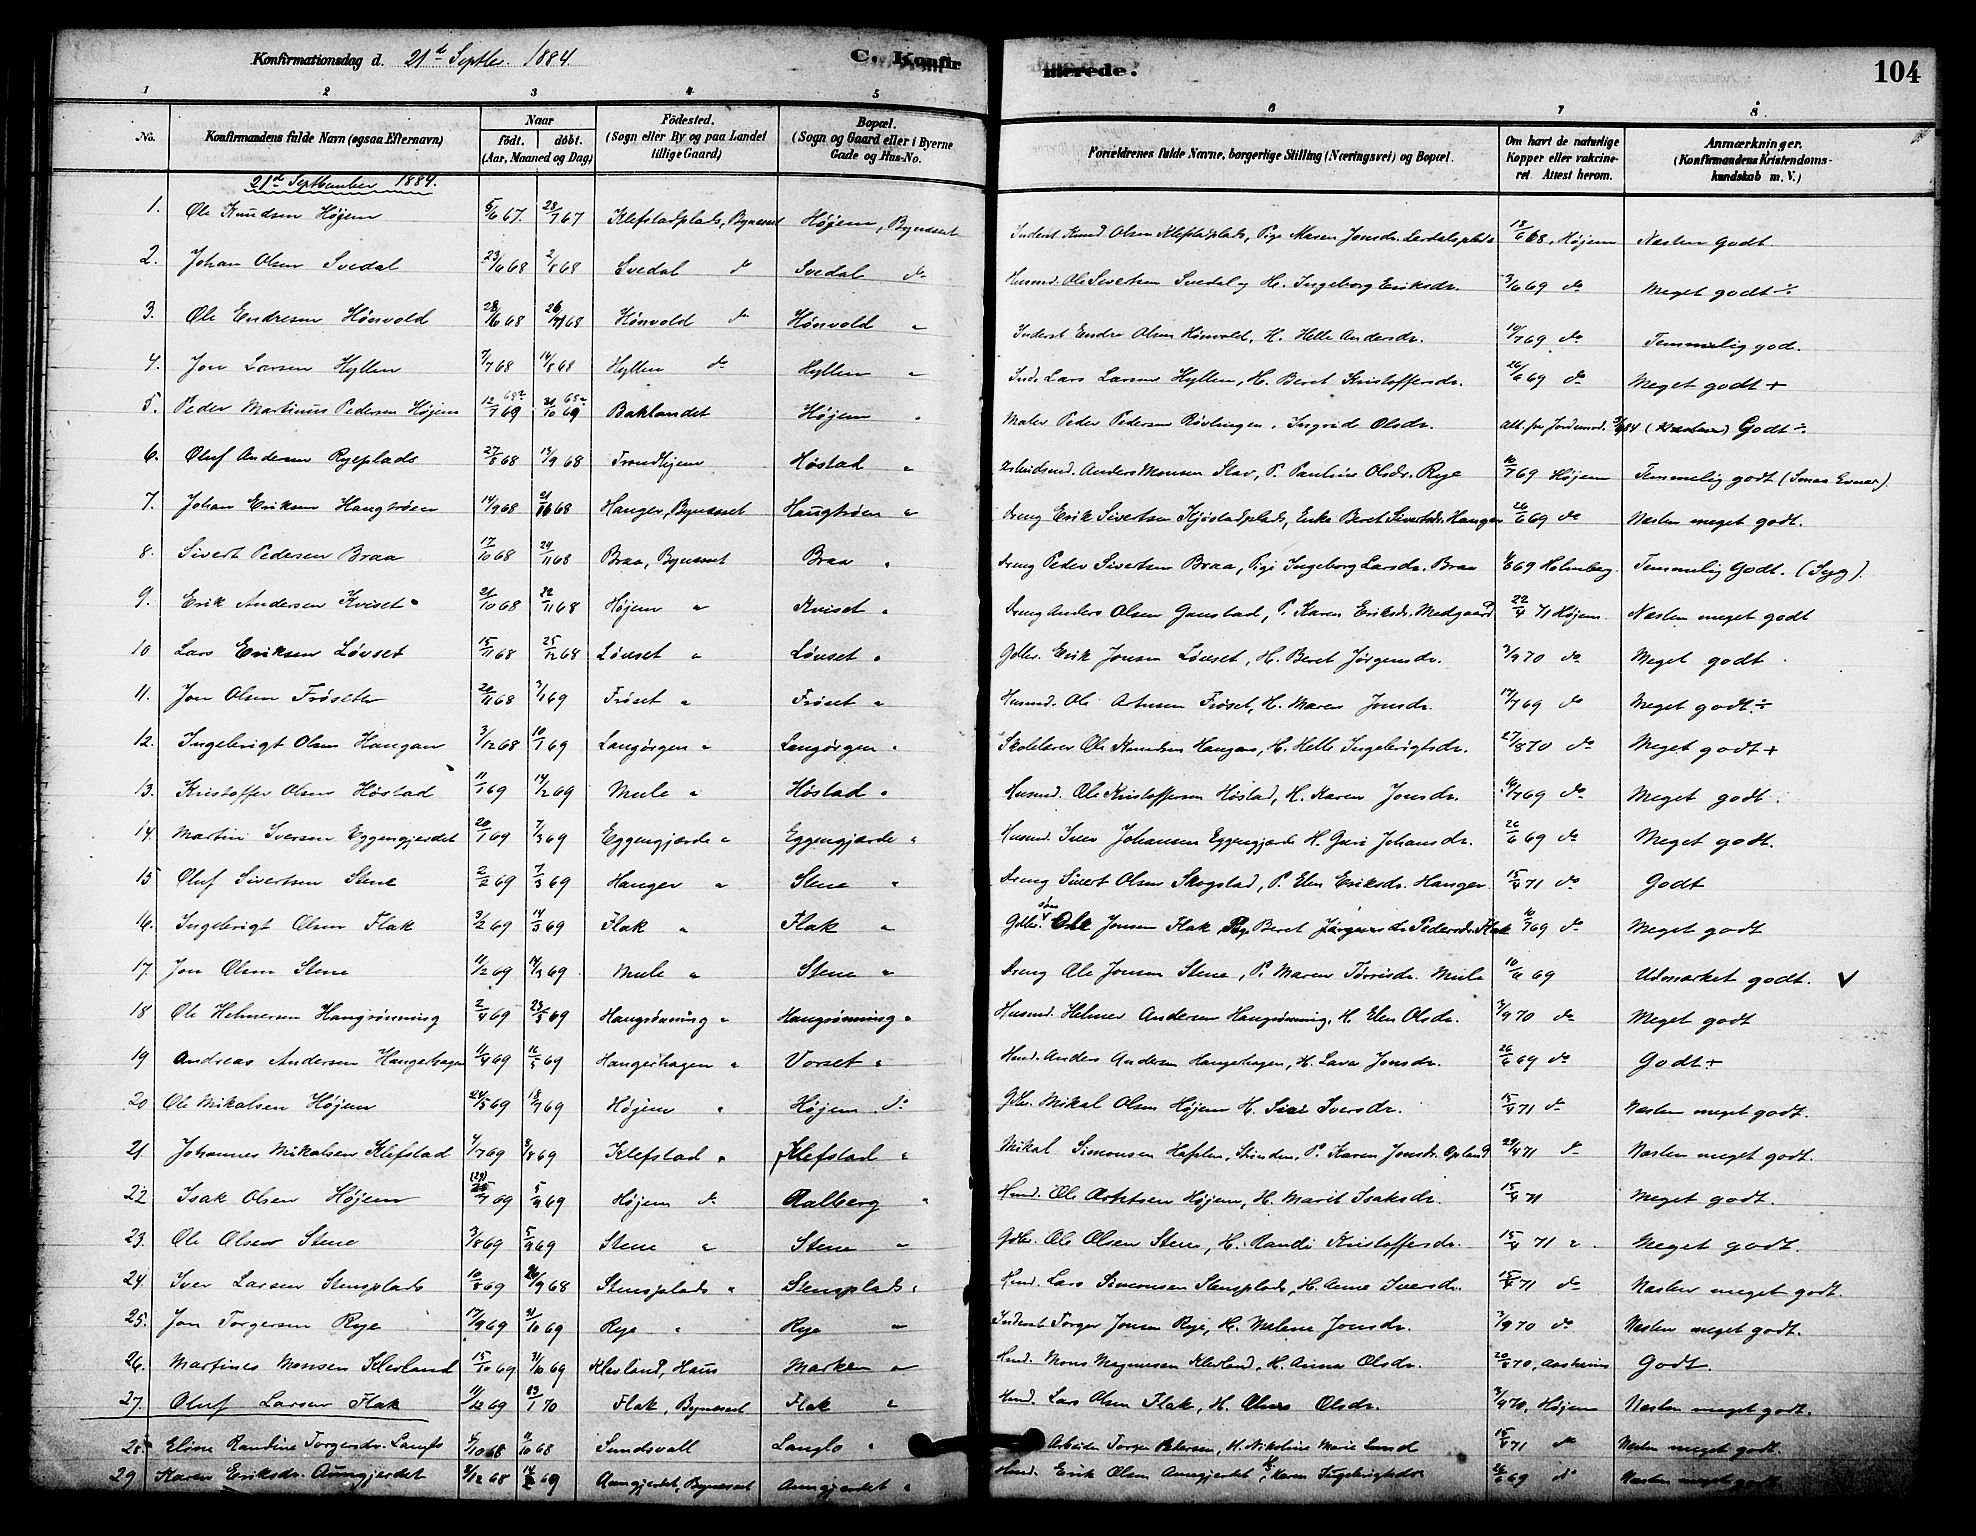 Konfirmationsdag d. 21d Septbr. 1884.
C. Konfirmerede.
104
1 2 3 4 5 6 7 8.
No.
Konfirmandens fulde Navn (ogsaa Efternavn)
Naar
födt. döbt.
(Aar, Maaned og Dag)
Födested.
(Sogn eller By og paa Landet tillige Gaard)
Bopæl.
(Sogn og Gaard eller i Byerne Gade og Hus-No.
Forældrenes fulde Navne, borgerlige Stilling (Næringsvei) og Bopæl.
Om havt de naturlige Kopper eller vakcineret. Attest herom.
Anmærkninger.
(Konfirmandens Kristendomskundskab m. V.)
21d September 1884.
1. Ole Knudsen Højem 5/6 67. 28/7 67 Klefstadplads, Bynesset Højem, Bynesset Inderst Knud Olsen Klefstadplads, Pige Maren Jonsdr. 18/6 68, Højem Næsten godt
2. Johan Olsen Svedal 23/6 68 2/8 68 Svedal do Svedal do Husmd. Ole Sivertsen Svedal, H. Ingeborg Eriksdr. 3/6 69 do Meget godt ÷
3. Ole Endresen Hønvold 28/6 68 26/7 68 Hønvold do Hønvold " Inderst Endre Olsen Hønvold, H. Helle Andersdr. 10/7 69 do Temmelig god.
4. Jon Larsen Hyllen 7/7 68 14/8 68 Hyllen do Hyllen " Inds. Lars Larsen Hyllen, H. Beret Kristoffersdr. 26/6 69 do Meget godt +
5. Peder Martinus Pedersen Højem 12/7 69 31/10 69 Baklandet Højem " Maler Peder Pedersen Røvlingen, Ingrid Olsdr. Att. fra Jordemod. Godt ÷
6. Oluf Andersen Ryeplads 27/8 68 14/9 68 Trondhjem Høstad " Arbeidsmd. Anders Monsen Stav, P. Pauline Olsdr. Rye 10/7 69 Højem Temmelig godt (Smaa Evner)
7. Johan Eriksen Haugtrøen 14/9 68 68 Hanger, Bynesset Haugtrøen " Dreng Erik Sivertsen Kjøstadplads, Enke Beret Sivertsdr. Hanger 26/6 69 do Næsten meget godt.
8. Sivert Pedersen Braa 17/10 68 24/11 68 Braa, Bynesset Braa " Dreng Peder Sivertsen Braa, Pige Ingeborg Larsdr. Braa 69 Holmberg. Temmelig Godt. (Syg).
9. Erik Andersen Kviset 21/10 68 22/11 68 Højem " Kviset " Dreng Anders Olsen Ganstad, P. Karen Eriksdr. Medgaard 22/4 71 Højem. Næsten meget godt
10 Lars Eriksen Løvset 15/11 68 25/12 68 Løvset " Løvset " Gdbr. Erik Jonsen Løvset, H. Beret Jørgensdr. 3/9 70 do Meget godt
11. Jon Olsen Frøset 20/11 68 3/1 69 Frøset " Frøset " Husmd. Ole Arntsen Frøset, H. Maren Jonsdr. 17/7 69 do Meget godt ÷
12. Ingebrigt Olsen Haugan 3/12 68 10/1 69 Langørgen " Langørgen " Skolelærer Ole Knudsen Haugan, H. Helle Ingebrigtsdr. 27/8 70 do Meget godt +
13. Kristoffer Olsen Høstad 11/1 69 14/2 69 Mule " Høstad " Husmd. Ole Kristoffersen Høstad, H. Karen Jonsdr. 10/7 69 do Meget godt.
14. Martin Iversen Eggengjerdet 20/1 69 7/3 69 Eggengjærde " Eggengjærde " Husmd. Iver Johansen Eggengjærde H. Guri Johansdr. 26/6 69 do Meget godt.
15 Oluf Sivertsen Stene 2/2 69 7/3 69 Hanger " Stene " Dreng Sivert Olsen Skogstad, P. Elen Eriksdr. Hanger. 15/4 71 do Godt
16. Ingebrigt Olsen Flak 3/2 69 14/3 69 Flak " Flak " Gdbr. søn Ole Jonsen Flak, Pig. Beret Pedersdr. Flak 10/7 69 do Meget godt
17. Jon Olsen Stene 11/2 69 14/3 69 Mule " Stene " Dreng Ole Jonsen Stene, P. Maren Torrisdr. Mule 10/6 69 Udmærket godt. V
18 Ole Helmersen Hangrønning 2/4 69 23/5 69 Hangrønning " Hangrønning " Husmd. Helmer Andersen Hangrønning, H. Elen Olsdr. 3/9 70 do Meget godt
19 Andreas Andersen Hangerhagen 11/4 69 16/5 69 Hangerhagen " Vorset " Husmd. Anders Andersen Hangerhagen, H. Lava Jonsdr. 26/6 69 do Godt +
20 Ole Mikalsen Højem 24/5 69 18/7 69 Højem " Højem do Gdbr. Mikal Olsen Højem H. Siri Iversdr. 15/4 71 do Næsten meget godt.
21. Johannes Mikalsen Klefstad 4/7 69 8/8 69 Klefstad " Klefstad " Mikal Simonsen Hafslen, Strinden, P. Karen Jonsdr. Opland 29/4 71 do Næsten meget godt.
22 Isak Olsen Højem (29) 25/7 69 5/9 69 Højem do Aalberg " Husmd. Ole Arntsen Højem, H. Marit Isaksdr. 15/4 71 Meget godt.
23. Ole Olsen Stene 3/8 69 5/9 69 Stene " Stene " Gdbr. Ole Olsen Stene, H. Randi Kristoffersdr. 15/4 71 " Meget godt.
24. Iver Larsen Stensplads 10/8 69 26/9 68 Stensplads " Stensplads " Husmd. Lars Simonsen Stensplads, H. Anne Iversdr. 15/4 71 do Næsten meget godt.
25. Jon Torgersen Rye 17/9 69 31/10 69 Rye " Rye " Inderst Torger Jonsen Rye, H. Malene Jonsdr. 3/9 70 do Næsten meget godt.
26. Martines Monsen Klevland 15/10 69 31/10 69 Klevland, Haus Marken " Husmd. Mons Magnussen Klevland, H. Anna Olsdr. 20/8 70, Godt.
27. Oluf Larsen Flak 11/12 69 23/1 70 Flak, Bynesset Flak " Husmd. Lars Olsen Flak, H. Olsdr. 3/9 70, Højem Næsten meget godt.
28 Eline Randine Torgersdr. Langlo 4/10 68 68 Sundsvall Langlo " Arbeider Torger Petersen, H. Nikoline Marie Lund 15/4 71 do Næsten meget godt.
29 Karen Eriksdr. Aungjerdet 3/12 68 14/2 69 Aungjerdet, Bynesset Aungjerdet " Husmd. Erik Olsen Aungjerdet, H. Karen Ingebrigtsdr 26/6 69 do Næsten meget godt